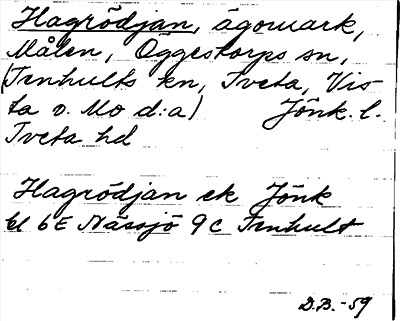 Hagrödjan, ägomark,
Målen, Öggestorps sn,
(Tenhults kn, Tveta, Vis-
ta o. Mo d:a) Jönk. l.
Tveta hd
Hagrödjan ek Jönk
bl 6E Nässjö 9c Tenhult
D.B.-59